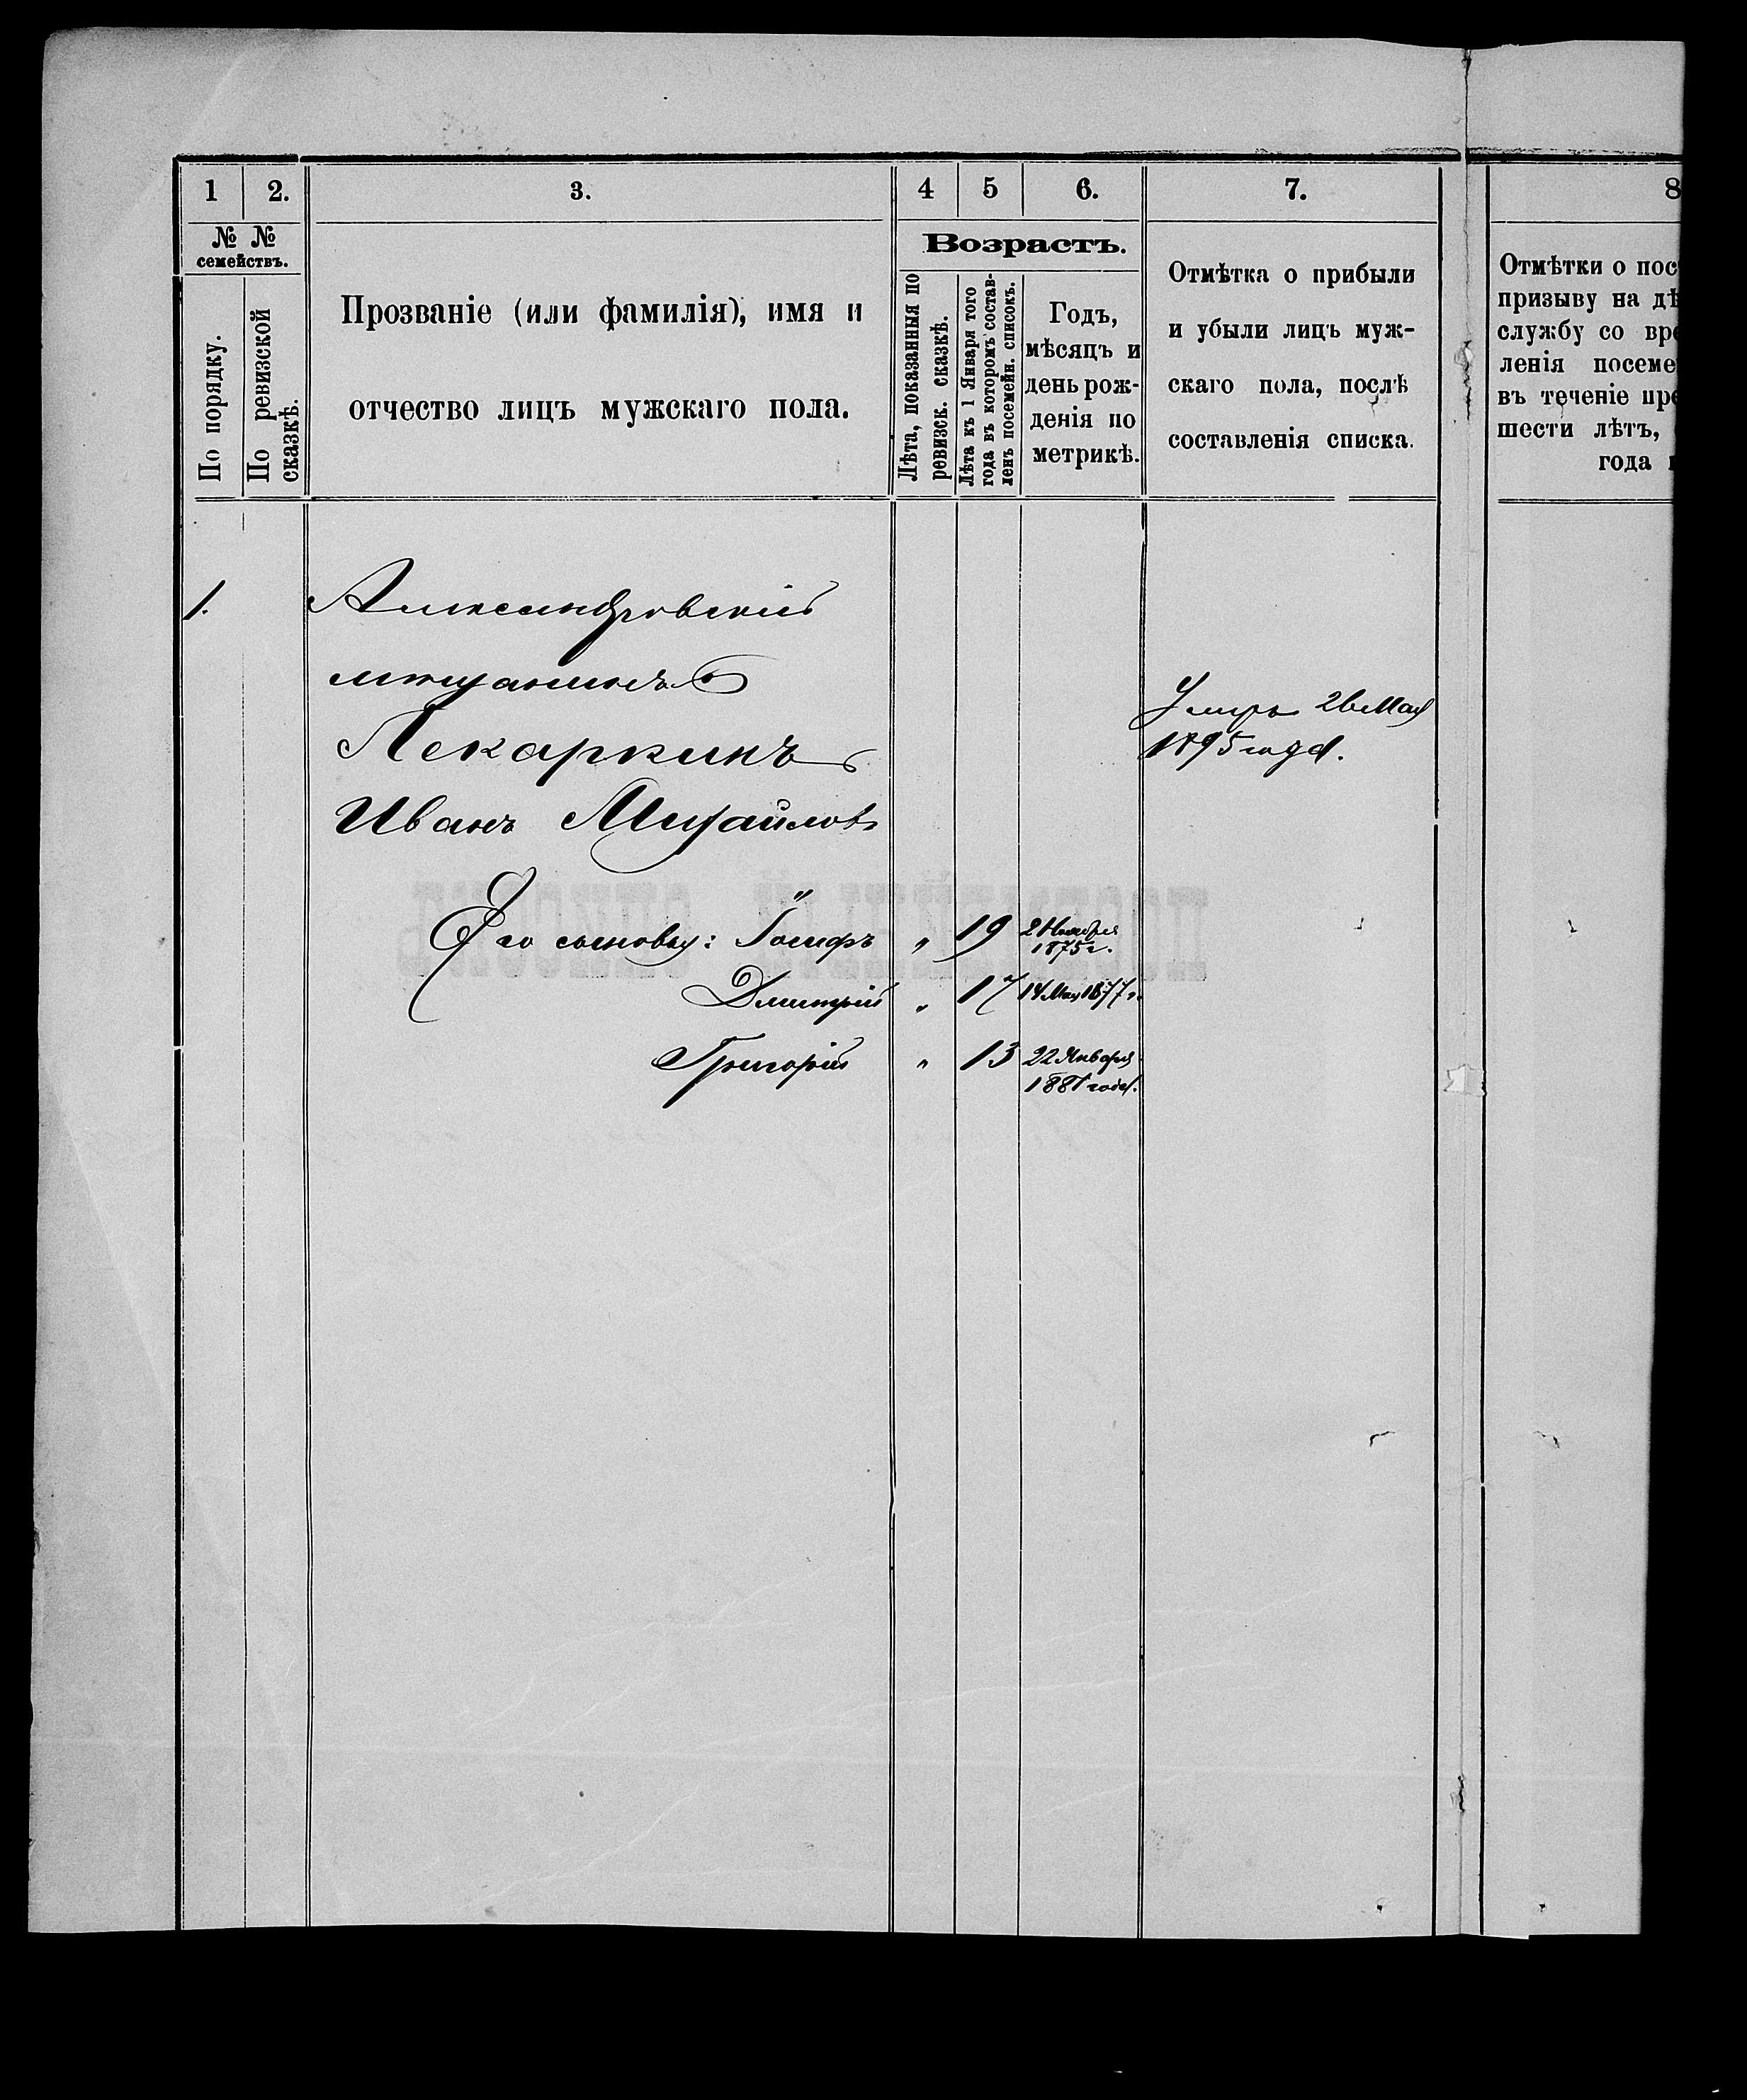 1 2. 3. 4 5 6. 7. 8
№ №
семействъ.
По порядку.
По ревизской
сказкѣ.
Прозваніе (или фамилія), имя и
отчество лицъ мужскаго пола.
Возрастъ.
Лѣта, показанныя по
ревизск. сказкѣ.
Лѣта къ 1 Января того
года въ которомъ состав-
ленъ посемейн. списокъ.
Годъ,
мѣсяцъ и
день рож-
денія по
метрикѣ.
Отмѣтка о прибыли
и убыли лицъ муж-
скаго пола, послѣ
составленія списка.
Отмѣтки о пос
призыву на дѣ
службу со вре
ленія посеме
въ теченіе пре
шести лѣтъ,
года
1. Александровскій
мѣщанинъ
Пекаркинъ
Иванъ Михайловъ
Умеръ 26 Мая
1895 года.
Его сыновья: Іосифъ " 19 2 Ноября
1875 г.
Дмитрій " 17 14 Мая 1877 г.
Григорій " 13 22 Января
1881 года.
ПОСЕМЕЙНЫЙ СПИСОКЪ